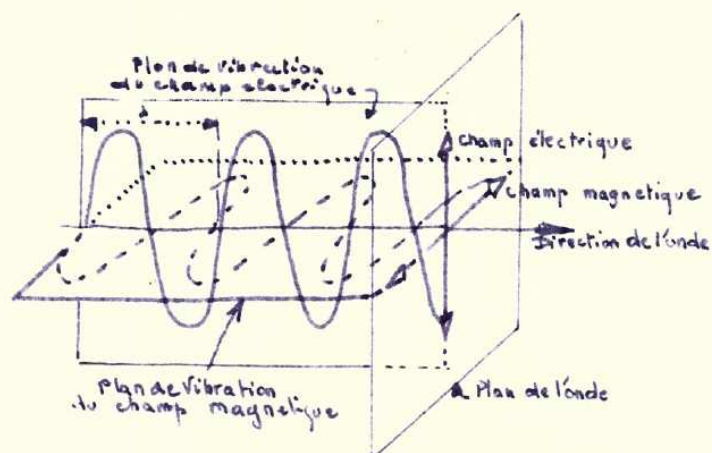 Plan de vibration
du champ electrique
champ électrique
champ magnetique
Direction de l'onde
Plan de Vibration
du champ magnetique
Plan de l'onde